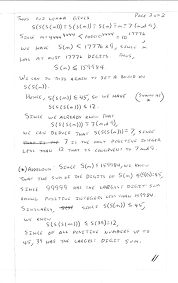 Page 2 of 2
Thus, the lemma gives
S(S(S(n))) ≡ S(S(n)) ≡ S(n) ≡ n ≡ 7 (mod 9)
Since n = 4444^4444 < 10000^4444 = 10^17776
we have S(n) < 17776·9, since n
has at most 17776 digits. Thus,
S(n) ≤ 159984
We can do this again to get a bound on
S(S(n)).
Hence, S(S(n)) ≤ 45, so we have
S(S(S(n))) ≤ 12.
Since we already know that
S(S(S(n))) ≡ 7 (mod 9),
we can deduce that S(S(S(n))) = 7, since
7 is the only positive integer
less than 12 that is congruent to 7 mod 9.
(*) Addendum: Since S(n) ≤ 159984, we know
that the sum of the digits of S(n) ≤ 45,
since 99999 has the largest digit sum
among positive integers less than 159984.
Similarly, since S(S(n)) ≤ 45,
we know
S(S(S(n))) ≤ S(39) = 12,
since of all positive numbers up to
45, 39 has the largest digit sum.